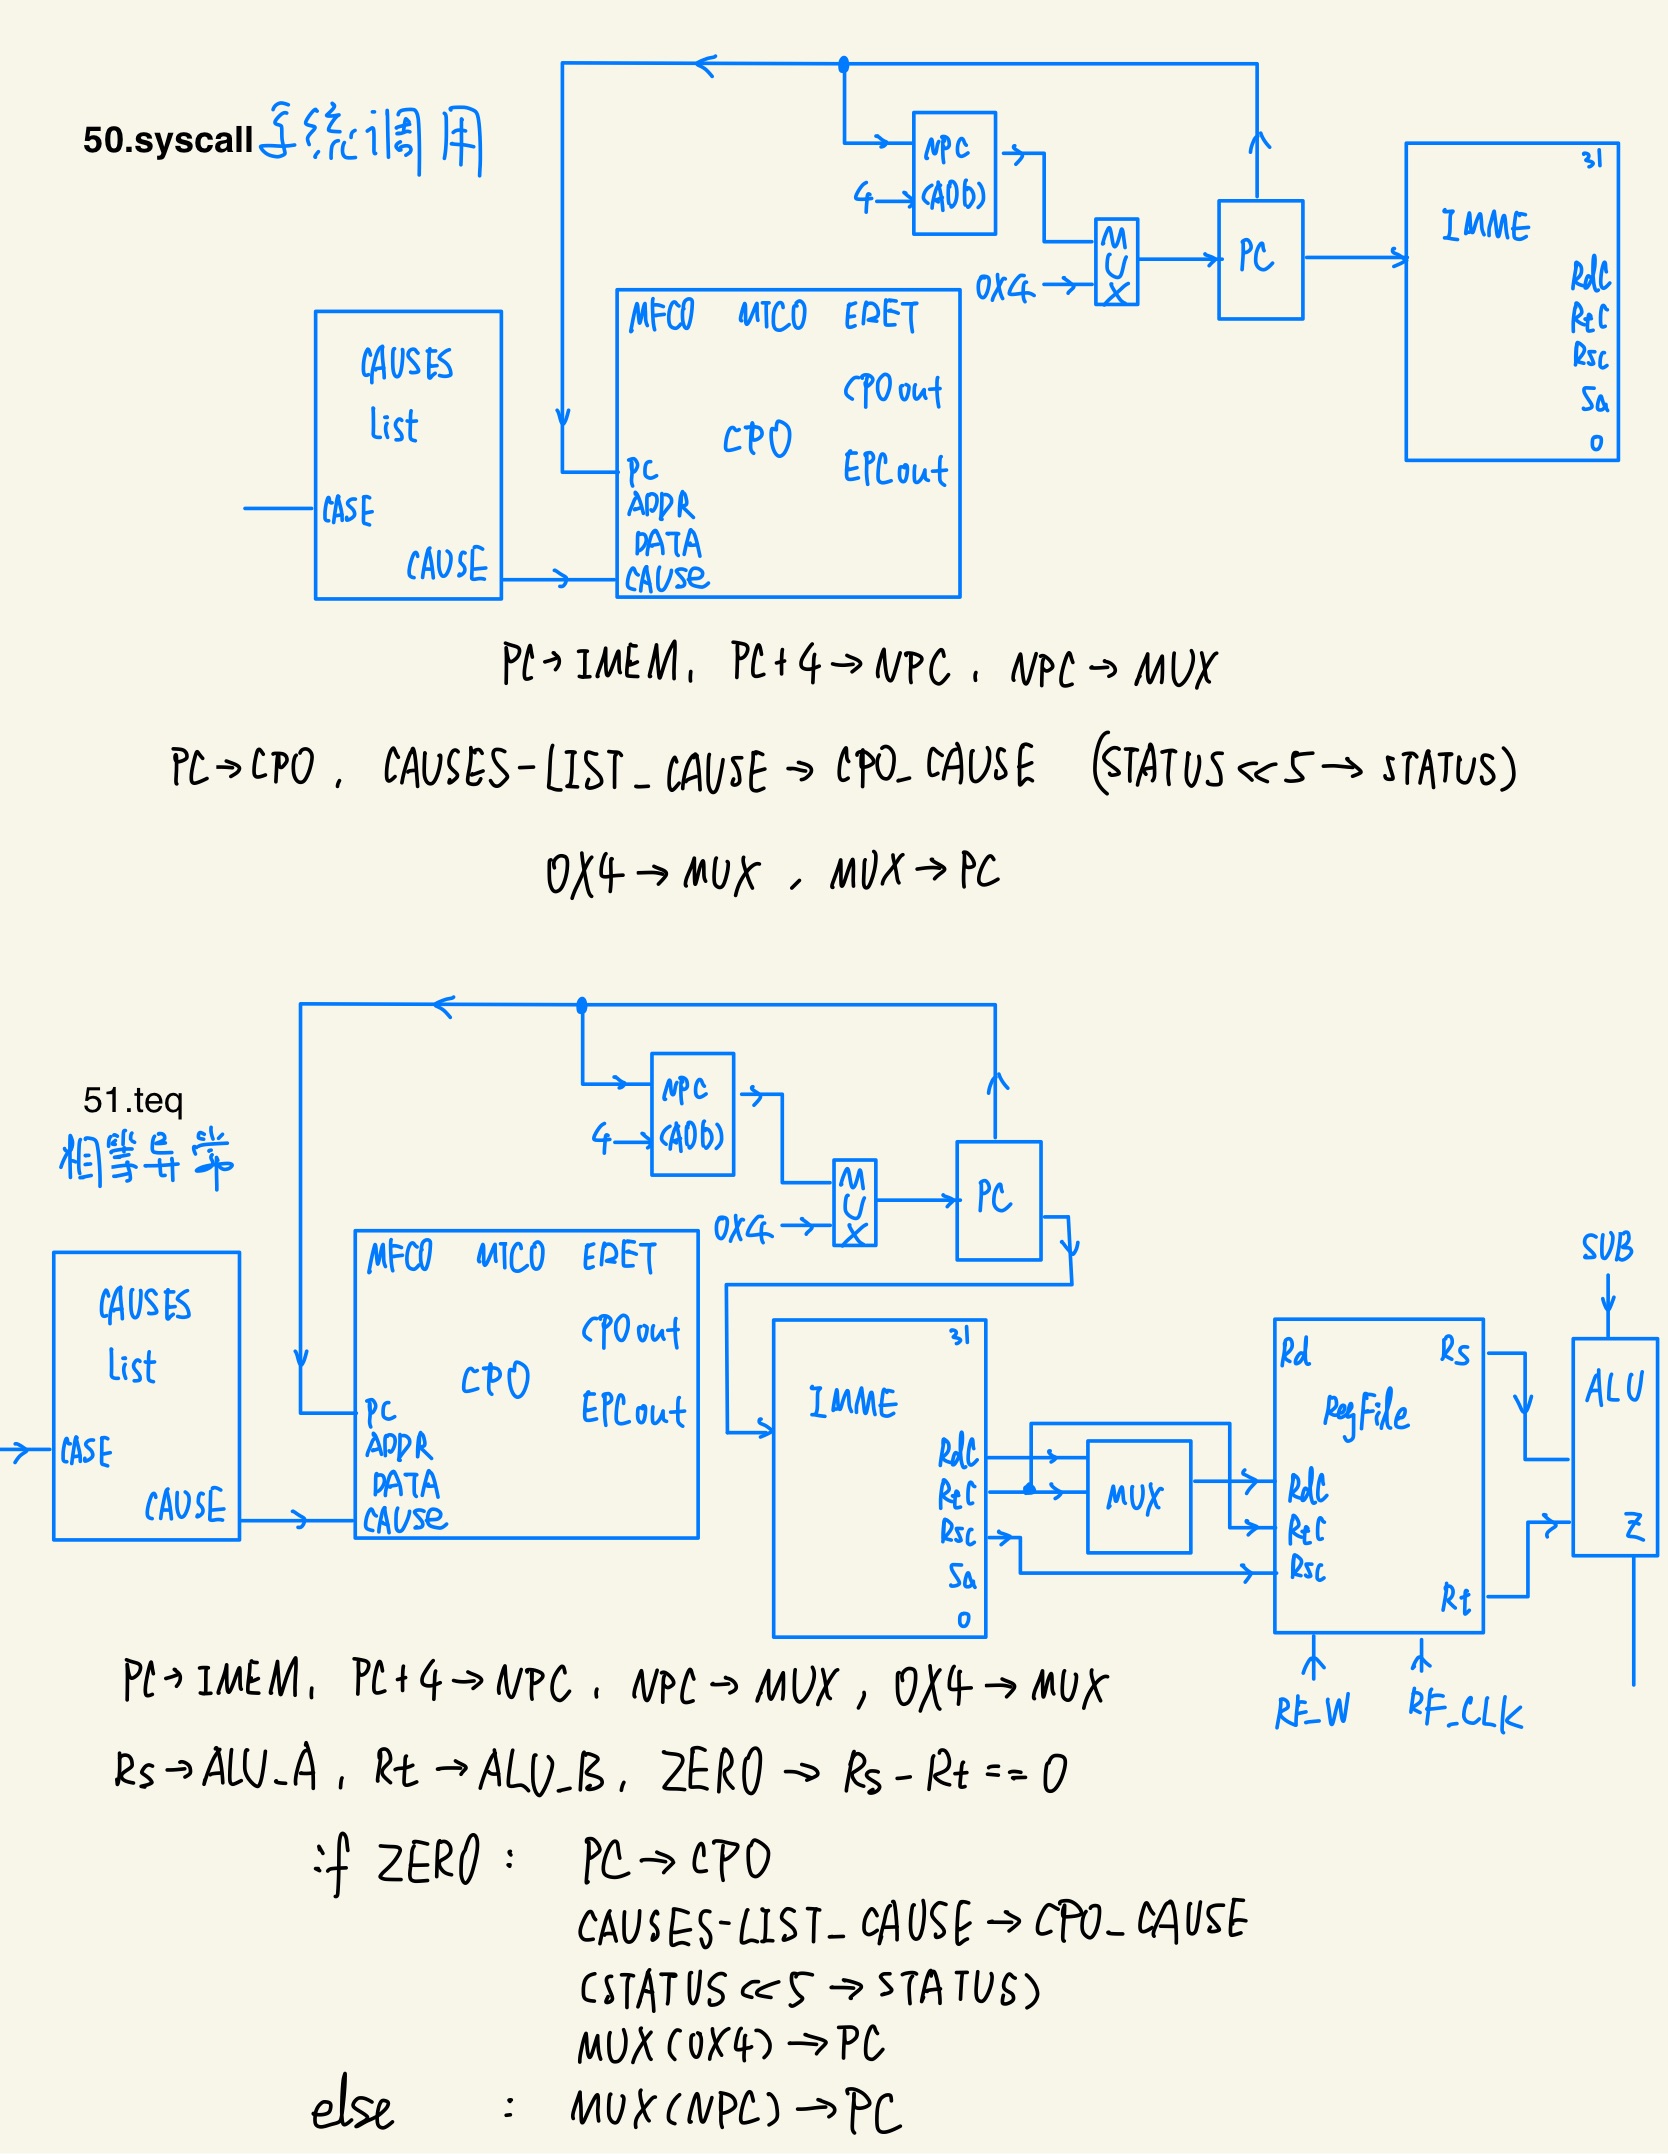 50.syscall 系统调用
NPC
(ADD)
4
MUX
0X4
PC
31
IMME
Rdc
Rtc
Rsc
Sa
0
CAUSES
List
CASE
CAUSE
MFC0 MTC0 ERET
CP0out
CP0
EPCout
PC
ADDR
DATA
CAUSE
PC→IMEM, PC+4→NPC, NPC→MUX
PC→CP0, CAUSES-LIST_CAUSE→CP0_CAUSE (STATUS<<5→STATUS)
0X4→MUX, MUX→PC
51.teq
相等异常
NPC
(ADD)
4
MUX
0X4
PC
CAUSES
List
CASE
CAUSE
MFC0 MTC0 ERET
CP0out
CP0
EPCout
PC
ADDR
DATA
CAUSE
31
IMME
Rdc
Rtc
Rsc
Sa
0
MUX
Rd Rs
RegFile
Rdc
Rtc
Rsc
Rt
RF_W RF_CLK
SUB
ALU
Z
PC→IMEM, PC+4→NPC, NPC→MUX, 0X4→MUX
Rs→ALU_A, Rt→ALU_B, ZERO→Rs-Rt==0
if ZERO: PC→CP0
CAUSES-LIST_CAUSE→CP0_CAUSE
(STATUS<<5→STATUS)
MUX(0X4)→PC
else : MUX(NPC)→PC